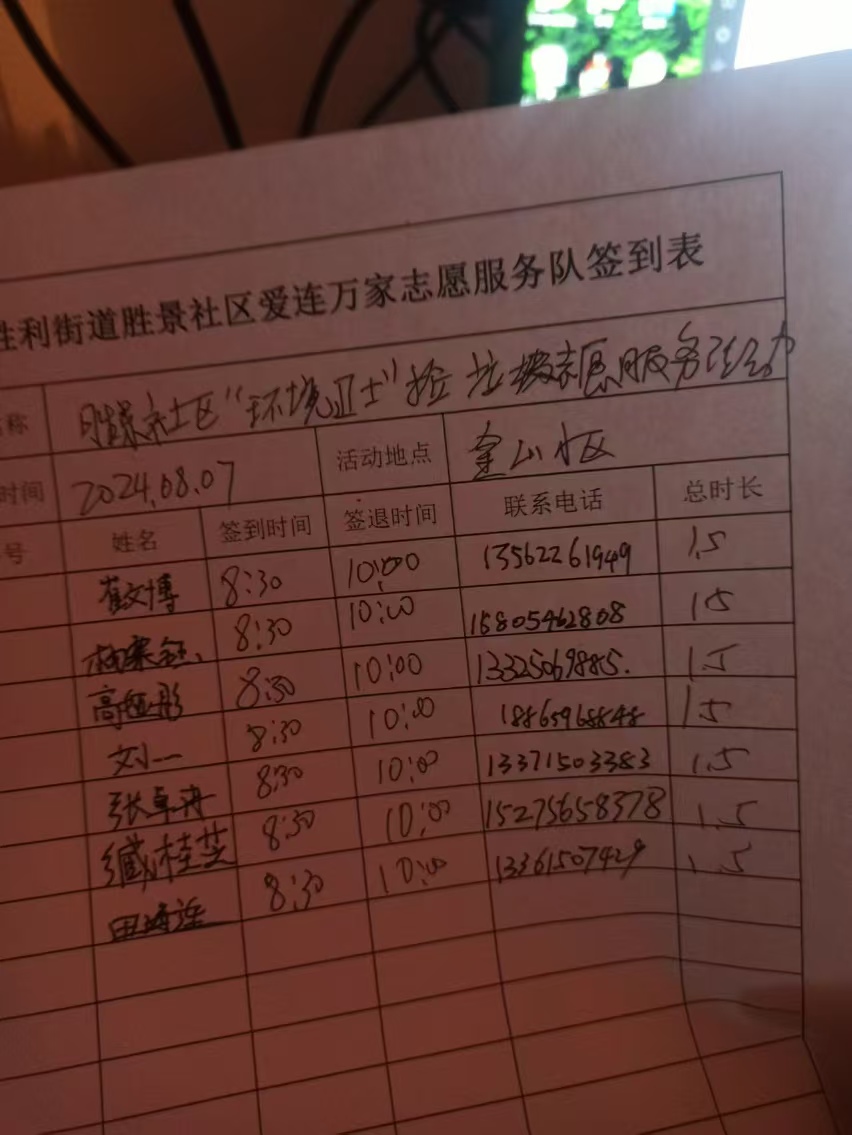 胜利街道胜景社区爱连万家志愿服务队签到表
名称 胜景社区“环境卫士”捡垃圾志愿服务活动
时间 2024.08.07 活动地点 金山小区
号 姓名 签到时间 签退时间 联系电话 总时长
崔文博 8:30 10:00 13562261949 1.5
8:30 10:00 15805462808 1.5
8:30 10:00 13325069885. 1.5
刘一 8:30 10:00 18865968848 1.5
张卓冉 8:30 10:00 13371503383 1.5
臧桂芝 8:30 10:00 15275658378 1.5
田海莲 8:30 10:00 13361507429 1.5